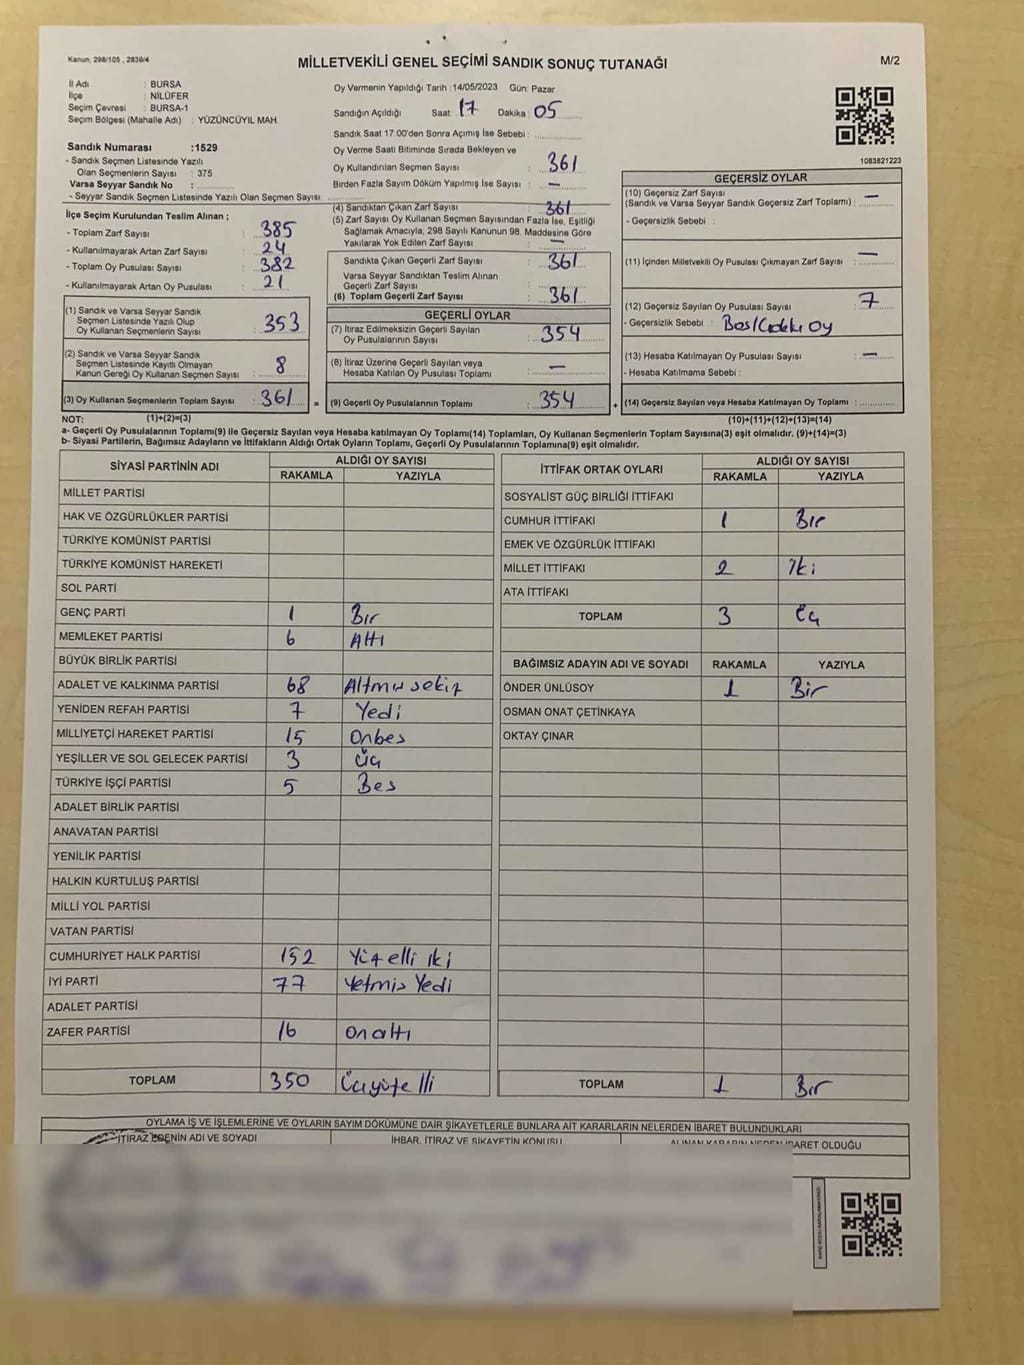 Kanun; 298/105 , 2839/4
MİLLETVEKİLİ GENEL SEÇİMİ SANDIK SONUÇ TUTANAĞI
M/2
İl Adı : BURSA
İlçe : NİLÜFER
Seçim Çevresi : BURSA-1
Seçim Bölgesi (Mahalle Adı) : YÜZÜNCÜYIL MAH
Sandık Numarası :1529
- Sandık Seçmen Listesinde Yazılı
Olan Seçmenlerin Sayısı : 375
Varsa Seyyar Sandık No :
- Seyyar Sandık Seçmen Listesinde Yazılı Olan Seçmen Sayısı
İlçe Seçim Kurulundan Teslim Alınan ;
- Toplam Zarf Sayısı : 385
- Kullanılmayarak Artan Zarf Sayısı : 24
- Toplam Oy Pusulası Sayısı : 382
- Kullanılmayarak Artan Oy Pusulası : 21
(1) Sandık ve Varsa Seyyar Sandık
Seçmen Listesinde Yazılı Olup
Oy Kullanan Seçmenlerin Sayısı : 353
(2) Sandık ve Varsa Seyyar Sandık
Seçmen Listesinde Kayıtlı Olmayan
Kanun Gereği Oy Kullanan Seçmen Sayısı : 8
(3) Oy Kullanan Seçmenlerin Toplam Sayısı : 361 =
Oy Vermenin Yapıldığı Tarih :14/05/2023 Gün: Pazar
Sandığın Açıldığı Saat: 17 Dakika: 05
Sandık Saat 17:00'den Sonra Açımış İse Sebebi :
Oy Verme Saati Bitiminde Sırada Bekleyen ve
Oy Kullandırılan Seçmen Sayısı : 361
Birden Fazla Sayım Döküm Yapılmış İse Sayısı : —
(4) Sandıktan Çıkan Zarf Sayısı : 361
(5) Zarf Sayısı Oy Kullanan Seçmen Sayısından Fazla İse, Eşitliği
Sağlamak Amacıyla; 298 Sayılı Kanunun 98. Maddesine Göre
Yakılarak Yok Edilen Zarf Sayısı : —
Sandıkta Çıkan Geçerli Zarf Sayısı : 361
Varsa Seyyar Sandıktan Teslim Alınan
Geçerli Zarf Sayısı :
(6) Toplam Geçerli Zarf Sayısı : 361
GEÇERLİ OYLAR
(7) İtiraz Edilmeksizin Geçerli Sayılan
Oy Pusulalarının Sayısı : 354
(8) İtiraz Üzerine Geçerli Sayılan veya
Hesaba Katılan Oy Pusulası Toplamı : —
(9) Geçerli Oy Pusulalarının Toplamı : 354 +
1083821223
GEÇERSİZ OYLAR
(10) Geçersiz Zarf Sayısı
(Sandık ve Varsa Seyyar Sandık Geçersiz Zarf Toplamı) : —
- Geçersizlik Sebebi :
(11) İçinden Milletvekili Oy Pusulası Çıkmayan Zarf Sayısı : —
(12) Geçersiz Sayılan Oy Pusulası Sayısı : 7
- Geçersizlik Sebebi : Bos/
Oy
(13) Hesaba Katılmayan Oy Pusulası Sayısı : —
- Hesaba Katılmama Sebebi :
(14) Geçersiz Sayılan veya Hesaba Katılmayan Oy Toplamı :
NOT: (1)+(2)=(3) (10)+(11)+(12)+(13)=(14)
a- Geçerli Oy Pusulalarının Toplamı(9) ile Geçersiz Sayılan veya Hesaba Katılmayan Oy Toplamı(14) Toplamları, Oy Kullanan Seçmenlerin Toplam Sayısına(3) eşit olmalıdır. (9)+(14)=(3)
b- Siyasi Partilerin, Bağımsız Adayların ve İttifakların Aldığı Ortak Oyların Toplamı, Geçerli Oy Pusulalarının Toplamına(9) eşit olmalıdır.
SİYASİ PARTİNİN ADI ALDIĞI OY SAYISI
RAKAMLA YAZIYLA
MİLLET PARTİSİ
HAK VE ÖZGÜRLÜKLER PARTİSİ
TÜRKİYE KOMÜNİST PARTİSİ
TÜRKİYE KOMÜNİST HAREKETİ
SOL PARTİ
GENÇ PARTİ 1 Bır
MEMLEKET PARTİSİ 6 Altı
BÜYÜK BİRLİK PARTİSİ
ADALET VE KALKINMA PARTİSİ 68 Altmıs sekiz
YENİDEN REFAH PARTİSİ 7 Yedi
MİLLİYETÇİ HAREKET PARTİSİ 15 Onbes
YEŞİLLER VE SOL GELECEK PARTİSİ 3 Üç
TÜRKİYE İŞÇİ PARTİSİ 5 Bes
ADALET BİRLİK PARTİSİ
ANAVATAN PARTİSİ
YENİLİK PARTİSİ
HALKIN KURTULUŞ PARTİSİ
MİLLİ YOL PARTİSİ
VATAN PARTİSİ
CUMHURİYET HALK PARTİSİ 152 Yüz elli iki
İYİ PARTİ 77 Yetmis Yedi
ADALET PARTİSİ
ZAFER PARTİSİ 16 Onaltı
TOPLAM 350 Üçyüzelli
İTTİFAK ORTAK OYLARI ALDIĞI OY SAYISI
RAKAMLA YAZIYLA
SOSYALİST GÜÇ BİRLİĞİ İTTİFAKI
CUMHUR İTTİFAKI 1 Bır
EMEK VE ÖZGÜRLÜK İTTİFAKI
MİLLET İTTİFAKI 2 İki
ATA İTTİFAKI
TOPLAM 3 Üç
BAĞIMSIZ ADAYIN ADI VE SOYADI RAKAMLA YAZIYLA
ÖNDER ÜNLÜSOY 1 Bir
OSMAN ONAT ÇETİNKAYA
OKTAY ÇINAR
TOPLAM 1 Bır
OYLAMA İŞ VE İŞLEMLERİNE VE OYLARIN SAYIM DÖKÜMÜNE DAİR ŞİKAYETLERLE BUNLARA AİT KARARLARIN NELERDEN İBARET BULUNDUKLARI
İTİRAZ EDENİN ADI VE SOYADI İHBAR, İTİRAZ VE ŞİKAYETİN KONUSU ALINAN KARARIN NEDEN İBARET OLDUĞU